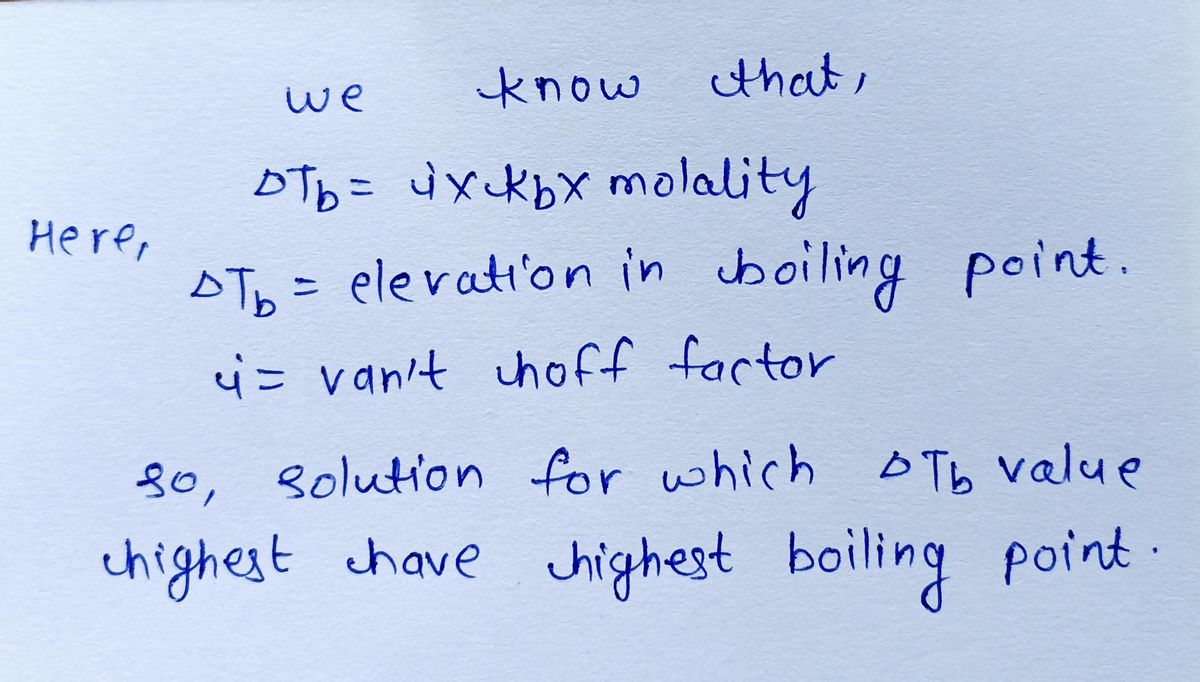 we know that,
ΔTb = i x kb x molality
Here,
ΔTb = elevation in boiling point.
i = van't hoff factor
so, solution for which ΔTb value
highest have highest boiling point.